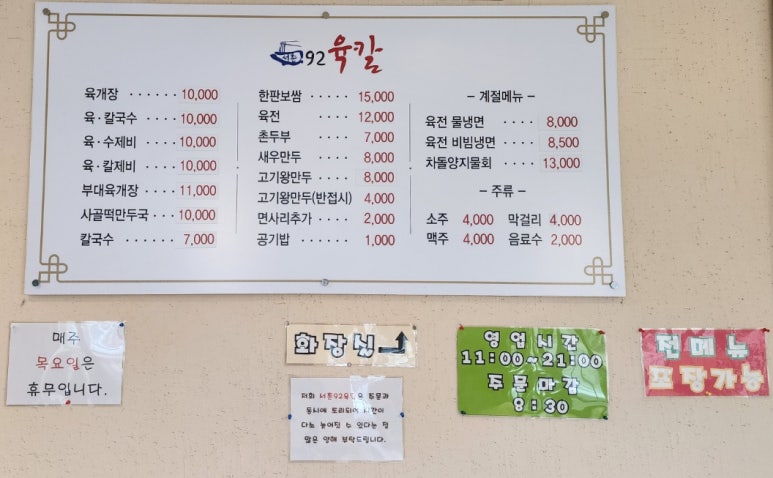 서훈92 육칼
육개장 ······ 10,000
육·칼국수 ···· 10,000
육·수제비 ···· 10,000
육·칼제비 ···· 10,000
부대육개장 ···· 11,000
사골떡만두국 ··· 10,000
칼국수 ······ 7,000
한판보쌈 ····· 15,000
육전 ······· 12,000
촌두부 ······ 7,000
새우만두 ····· 8,000
고기왕만두 ···· 8,000
고기왕만두(반접시) 4,000
면사리추가 ···· 2,000
공기밥 ······ 1,000
– 계절메뉴 –
육전 물냉면 ···· 8,000
육전 비빔냉면 ··· 8,500
차돌양지물회 ···· 13,000
– 주류 –
소주 4,000 막걸리 4,000
맥주 4,000 음료수 2,000
매주
목요일은
휴무입니다.
화장실
저희 서훈92육칼은 주문과
동시에 조리되어 시간이
다소 늦어질 수 있다는 점
많은 양해 부탁드립니다.
영업시간
11:00~21:00
주문마감
8:30
전메뉴
포장가능